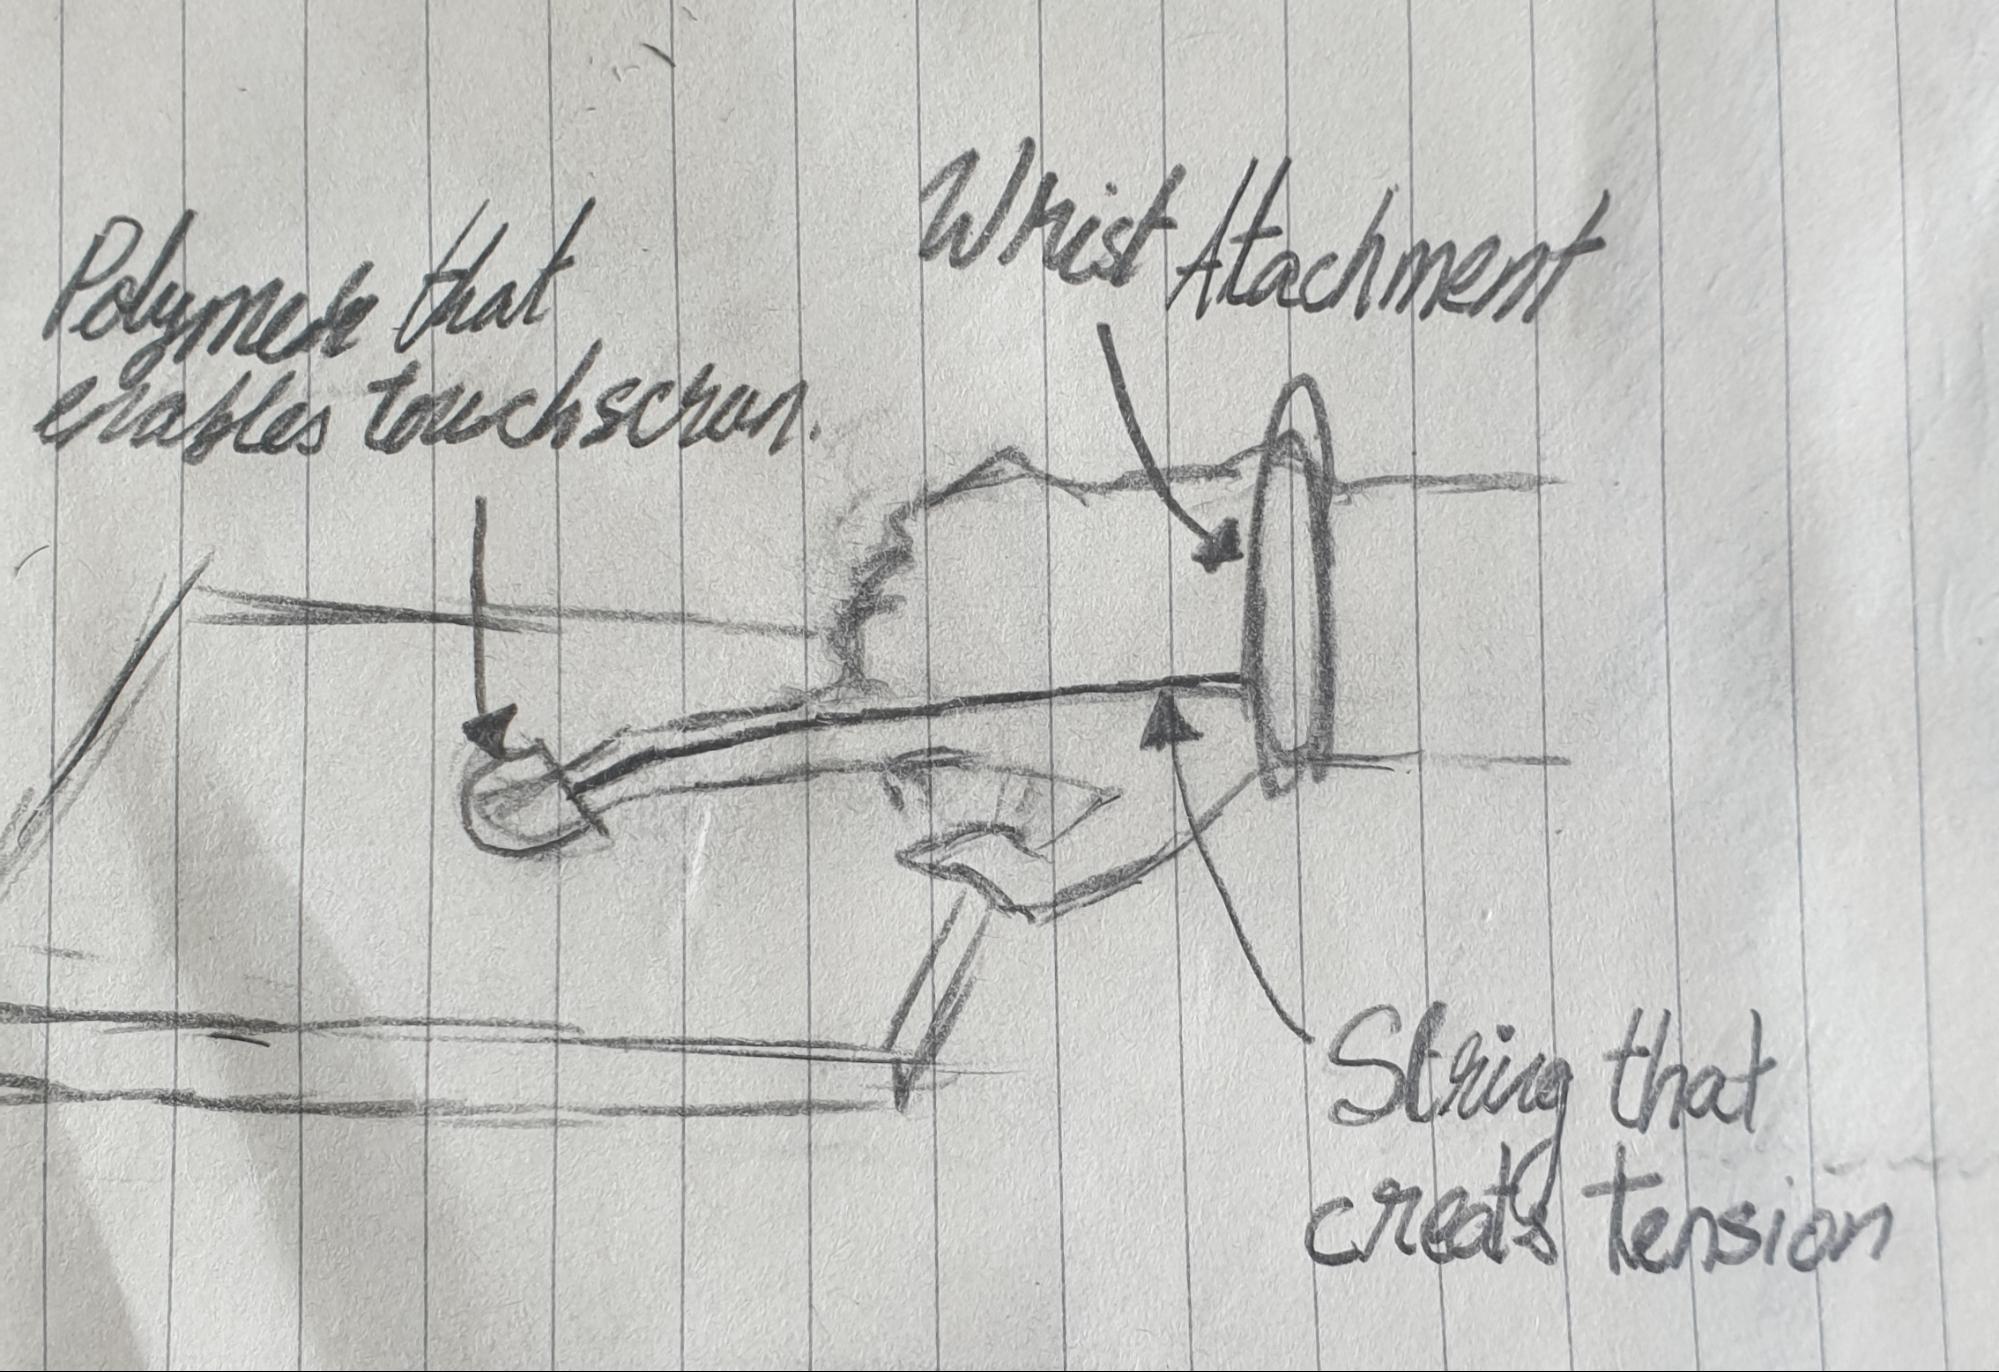 Polymer that
enables touchscreen.
Wrist Atachment
String that
creats tension